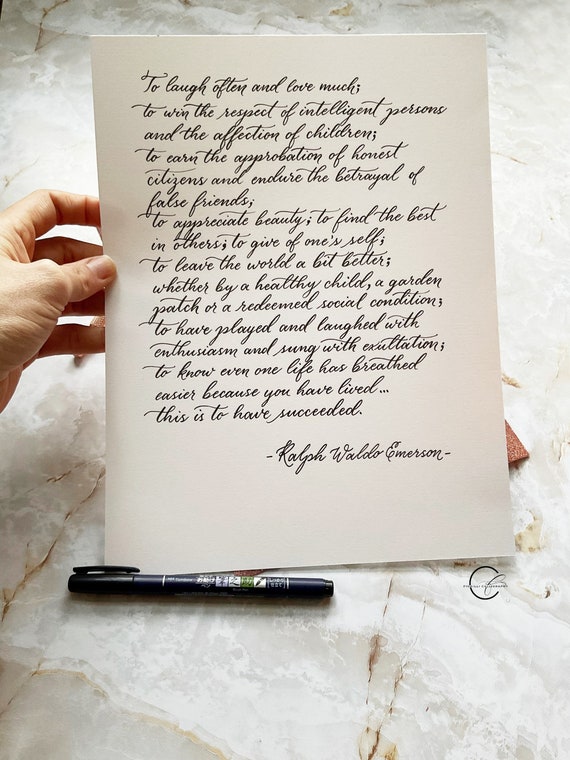 To laugh often and love much;
to win the respect of intelligent persons
and the affection of children;
to earn the approbation of honest
citizens and endure the betrayal of
false friends;
to appreciate beauty; to find the best
in others; to give of one's self;
to leave the world a bit better;
whether by a healthy child, a garden
patch or a redeemed social condition;
to have played and laughed with
enthusiasm and sung with exultation;
to know even one life has breathed
easier because you have lived...
this is to have succeeded.
-Ralph Waldo Emerson-